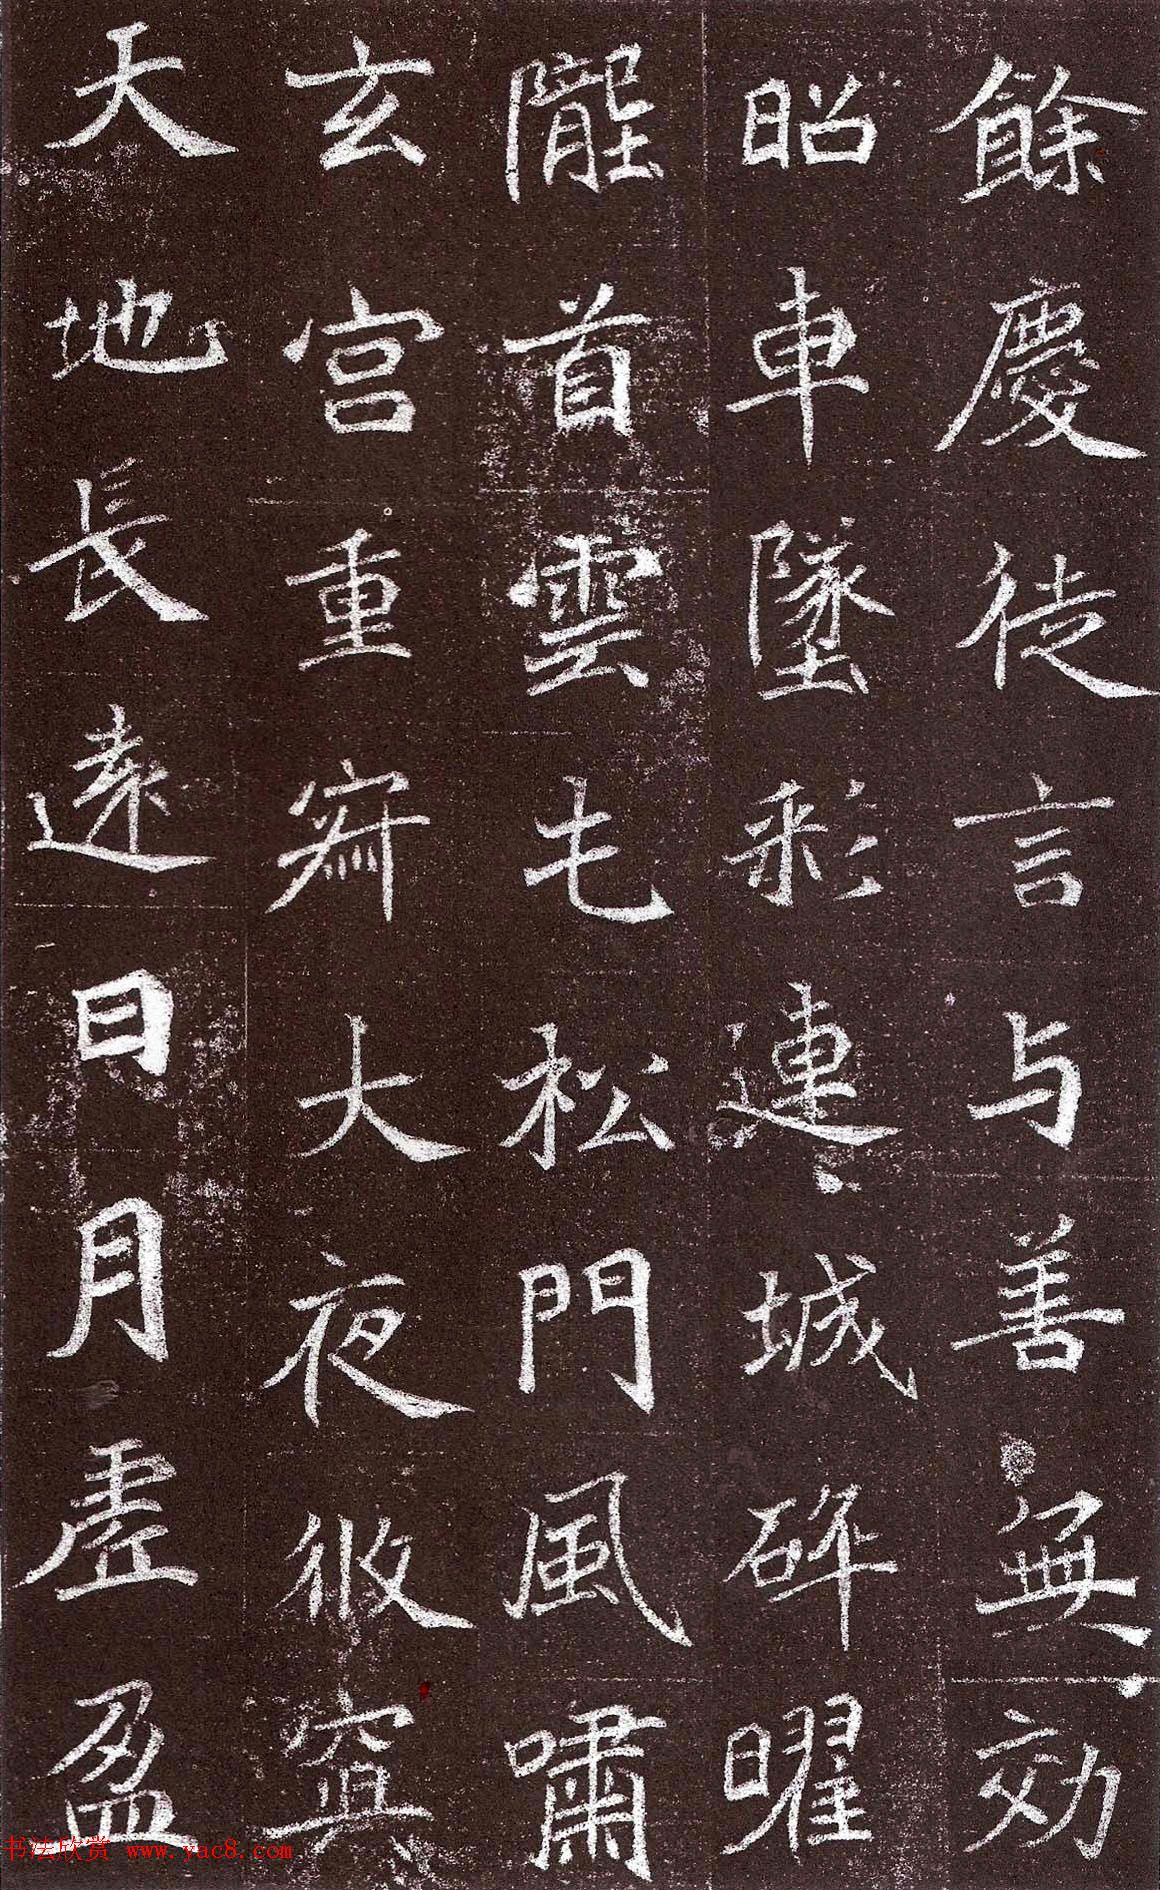 餘慶徒言与善無効
昭車墜彩連城碎曜
隴首雲屯松門風嘯
玄宫重寂大夜攸寘
天地長遠日月虛盈
书法欣赏 www.yac8.com